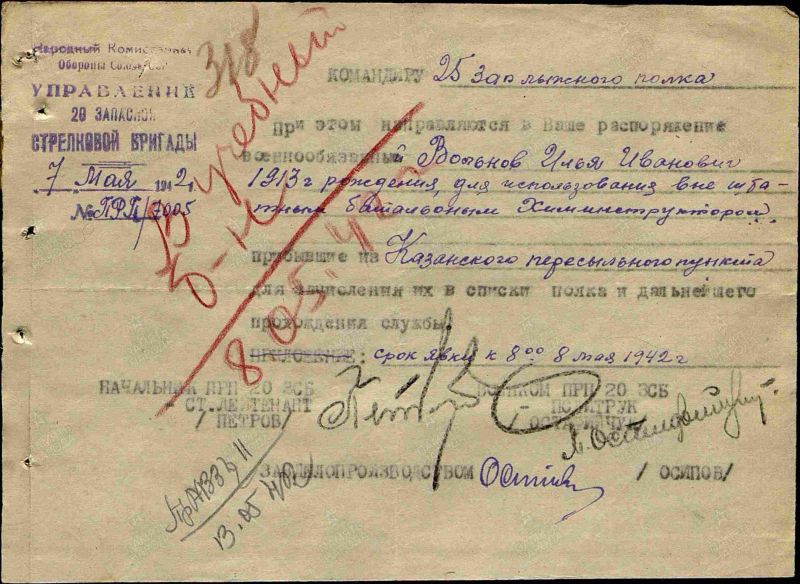 Народный Комиссариат
Обороны Союза ССР
УПРАВЛЕНИЕ
20 ЗАПАСНОЙ
СТРЕЛКОВОЙ БРИГАДЫ
7 Мая 1942
№ ПРП/7005
318
В учебный
б-н
805.
КОМАНДИРУ 25 зап лыжного полка
При этом направляются в Ваше распоряжение
военнообязанный Вольнов Илья Иванович
1913 г рождения, для использования вне шта-
тным батальоным Химинструктором.
прибывшие из Казанского пересыльного пункта
для зачисления их в списки полка и дальнейшего
прохождения службы.
ПРИЛОЖЕНИЕ: срок явки к 8⁰⁰ 8 мая 1942 г
НАЧАЛЬНИК ПРП 20 ЗСБ
СТ. ЛЕЙТЕНАНТ
/ ПЕТРОВ/
ВОЕНКОМ ПРП 20 ЗСБ
ПОЛИТРУК
ЗАВ ДЕЛОПРОИЗВОДСТВОМ / ОСИПОВ/
13.05